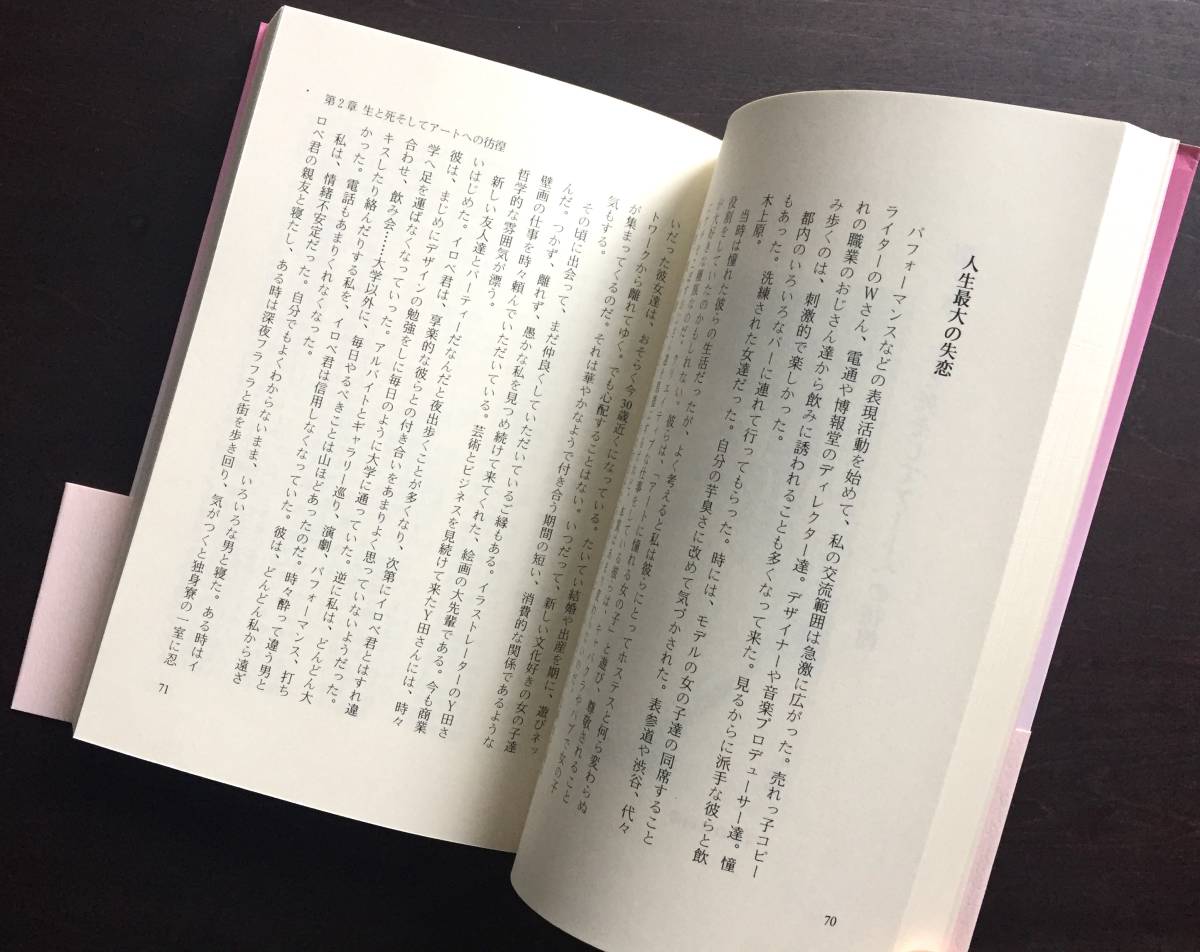 人生最大の失恋
パフォーマンスなどの表現活動を始めて、私の交流範囲は急激に広がった。売れっ子コピー
ライターのWさん、電通や博報堂のディレクター達。デザイナーや音楽プロデューサー達。憧
れの職業のおじさん達から飲みに誘われることも多くなって来た。見るからに派手な彼らと飲
み歩くのは、刺激的で楽しかった。
都内のいろいろなバーに連れて行ってもらった。時には、モデルの女の子達の同席すること
もあった。洗練された女達だった。自分の芋臭さに改めて気づかされた。表参道や渋谷、代々
木上原。
当時は憧れた彼らの生活だったが、よく考えると私は彼らにとってホステスと何ら変わらぬ
役割をしていたのかもしれない。彼らは、アートに憧れる女の子
と遊び、尊敬されること
70
第2章 生と死そしてアートへの彷徨
いだった彼女達は、おそらく今30歳近くになっている。たいてい結婚や出産を期に、遊びネッ
トワークから離れてゆく。でも心配することはない。いつだって、新しい文化好きの女の子達
が集まってくるのだ。それは華やかなようで付き合う期間の短い、消費的な関係であるような
気もする。
その頃に出会って、まだ仲良くしていただいているご縁もある。イラストレーターのY田さ
んだ。つかず、離れず、愚かな私を見つめ続けて来てくれた、絵画の大先輩である。今も商業
壁画の仕事を時々頼んでいただいている。芸術とビジネスを見続けて来たY田さんには、時々
哲学的な雰囲気が漂う。
新しい友人達とパーティーだなんだと夜出歩くことが多くなり、次第にイロベ君とはすれ違
いはじめた。イロベ君は、享楽的な彼らとの付き合いをあまりよく思っていないようだった。
彼は、まじめにデザインの勉強をしに毎日のように大学に通っていた。逆に私は、どんどん大
学へ足を運ばなくなっていった。アルバイトとギャラリー巡り、演劇、パフォーマンス、打ち
合わせ、飲み会……大学以外に、毎日やるべきことは山ほどあったのだ。時々酔って違う男と
キスしたり絡んだりする私を、イロベ君は信用しなくなっていた。彼は、どんどん私から遠ざ
かった。電話もあまりくれなくなった。
私は、情緒不安定だった。自分でもよくわからないまま、いろいろな男と寝た。ある時はイ
ロベ君の親友と寝たし、ある時は深夜フラフラと街を歩き回り、気がつくと独身寮の一室に忍
71